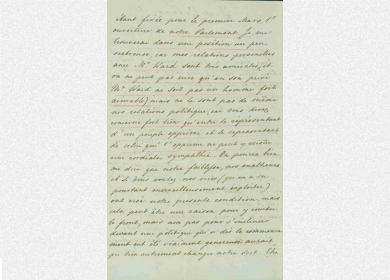 étant fixée pour le premier Mars l'
ouverture de notre Parlement. Je me
trouverai dans une position un peu
scabreuse, car mes relations personelles
avec Mr Ward sont très amicales, et
on ne peut pas nier qu'en son privé
Mr Ward ne soit pas un homme fort
aimable, mais ne le sont pas de même
nos relations politiques, car vous devez
concevoir fort bien qu'entre le représentant
d'un peuple oppressé et le représentant
de celui qui l'opprime ne peut y exister
une cordiale sympathie. On pourra bien
me dire que notre faiblesse, nos malheurs
et si vous voulez nos vices, (qu'on a
pourtant merveilleusement exploités)
ont créé notre présente condition, mais
cela peut être une raison pour y
le front, mais non pas pour s'incliner
devant une politique qui si dès le commence
ment eut été vraiment généreuse aurait
pu bien autrement changer notre sort.